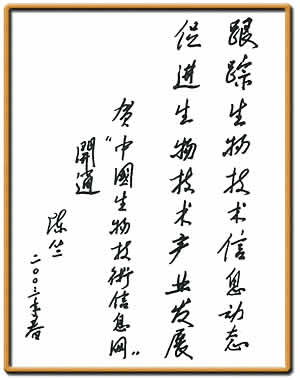 跟踪生物技术信息动态
促进生物技术产业发展
贺“中國生物技術信息网”
開通
陈竺
二〇〇三年春